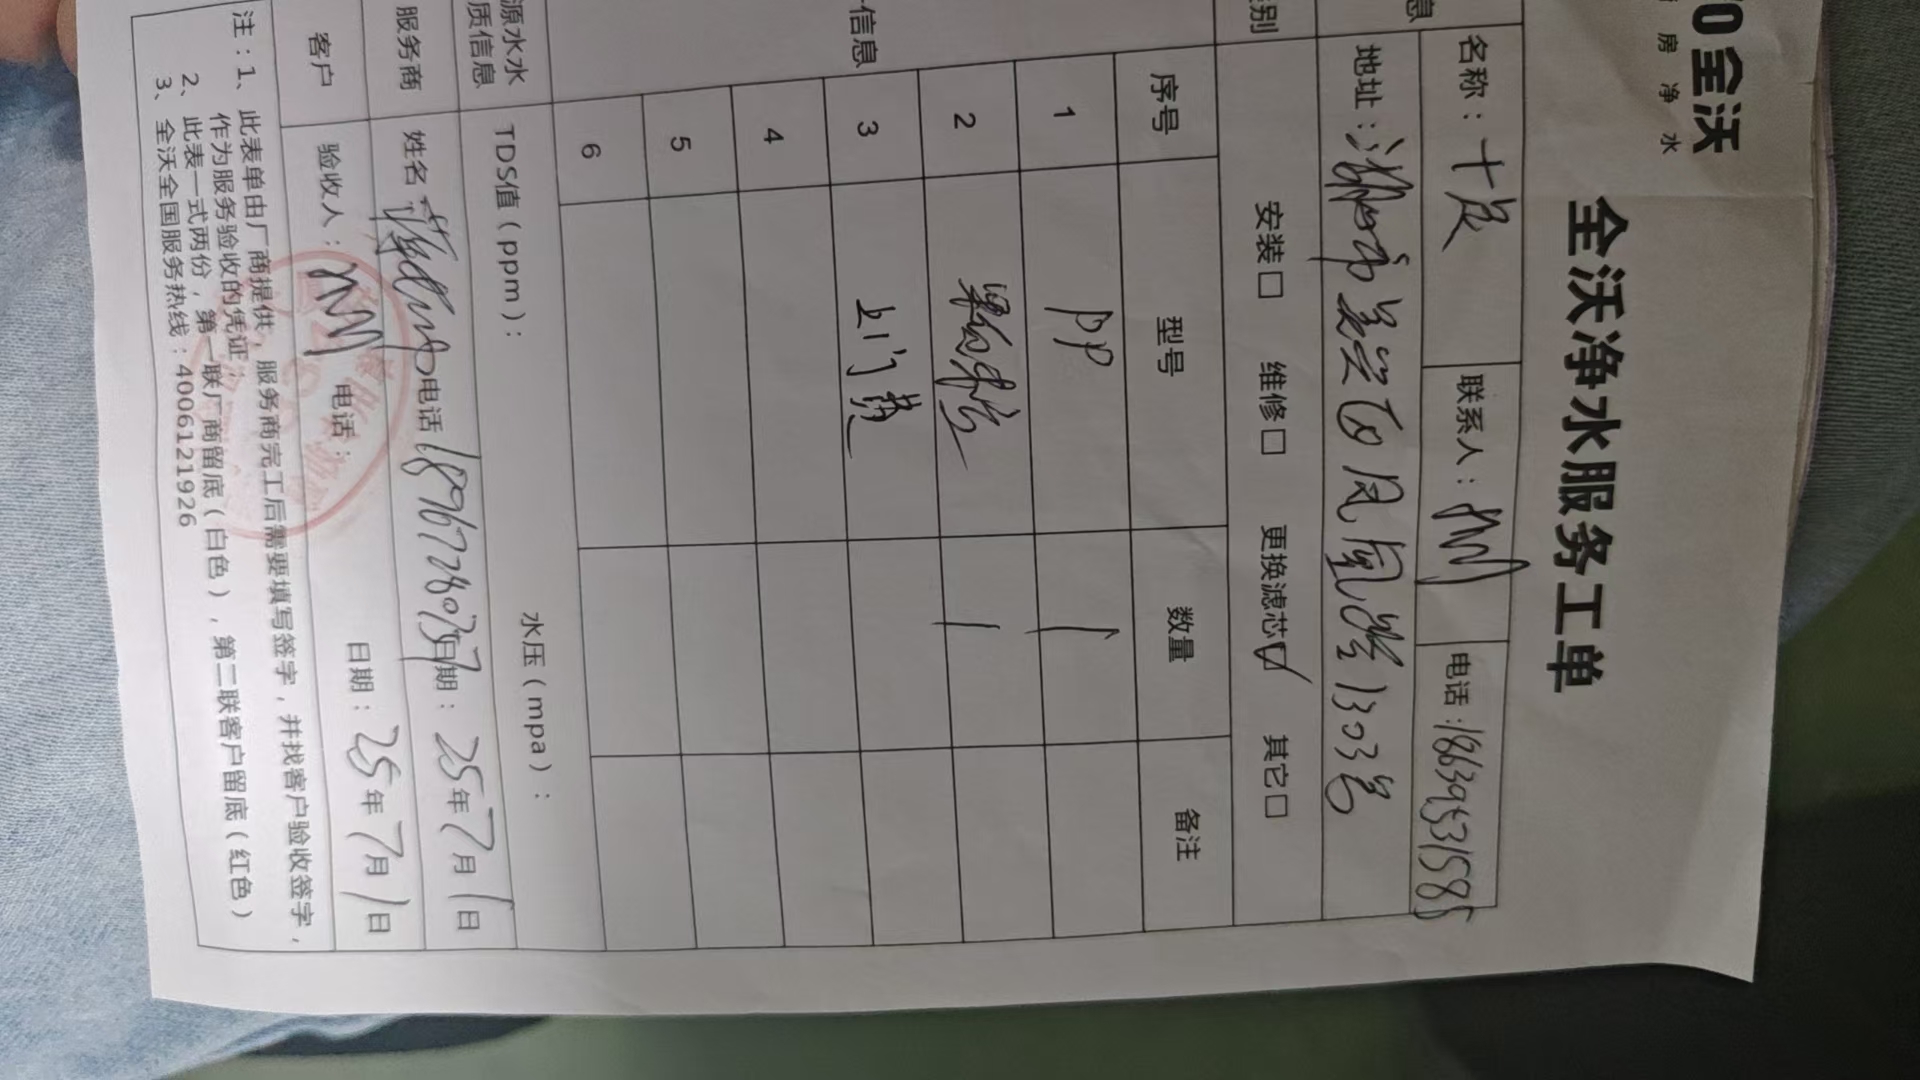 0全沃
房净水
全沃净水服务工单
息
名称：十 联系人： 电话：18639531585
地址：湖 市 区凤凰 1303号
别
安装□ 维修□ 更换滤芯☑ 其它□
信息
序号 型号 数量 备注
1 PP 1
2 1
3 上门费
4
5
6
源水水质信息
TDS值（ppm）： 水压（mpa）：
服务商
姓名： 电话 日期：25年7月1日
客户
验收人： 电话： 日期：25年7月1日
注：1、此表单由厂商提供，服务商完工后需要填写签字，并找客户验收签字，
作为服务验收的凭证；
2、此表一式两份，第一联厂商留底（白色），第二联客户留底（红色）
3、全沃全国服务热线：4006121926